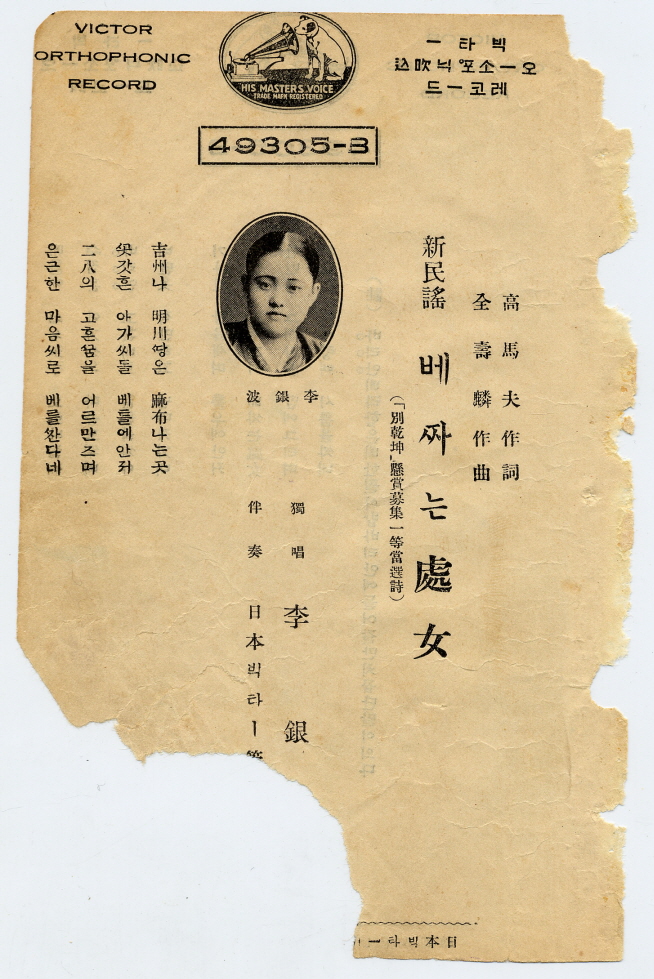 VICTOR
ORTHOPHONIC
RECORD
HIS MASTER'S VOICE
TRADE MARK REGISTERED
빅타ー
오ー소또닉吹込
레코ー드
49305-B
高馬夫作詞
全壽麟作曲
新民謠 베짜는處女
(「別乾坤」懸賞募集一等當選詩)
李銀波
獨唱 李銀
伴奏 日本빅타ー
吉州나 明川땅은 麻布나는곳
꼿갓흔 아가씨들 베틀에안저
二八의 고흔꿈을 어르만즈며
은근한 마음씨로 베를짠다네
日本빅타ー